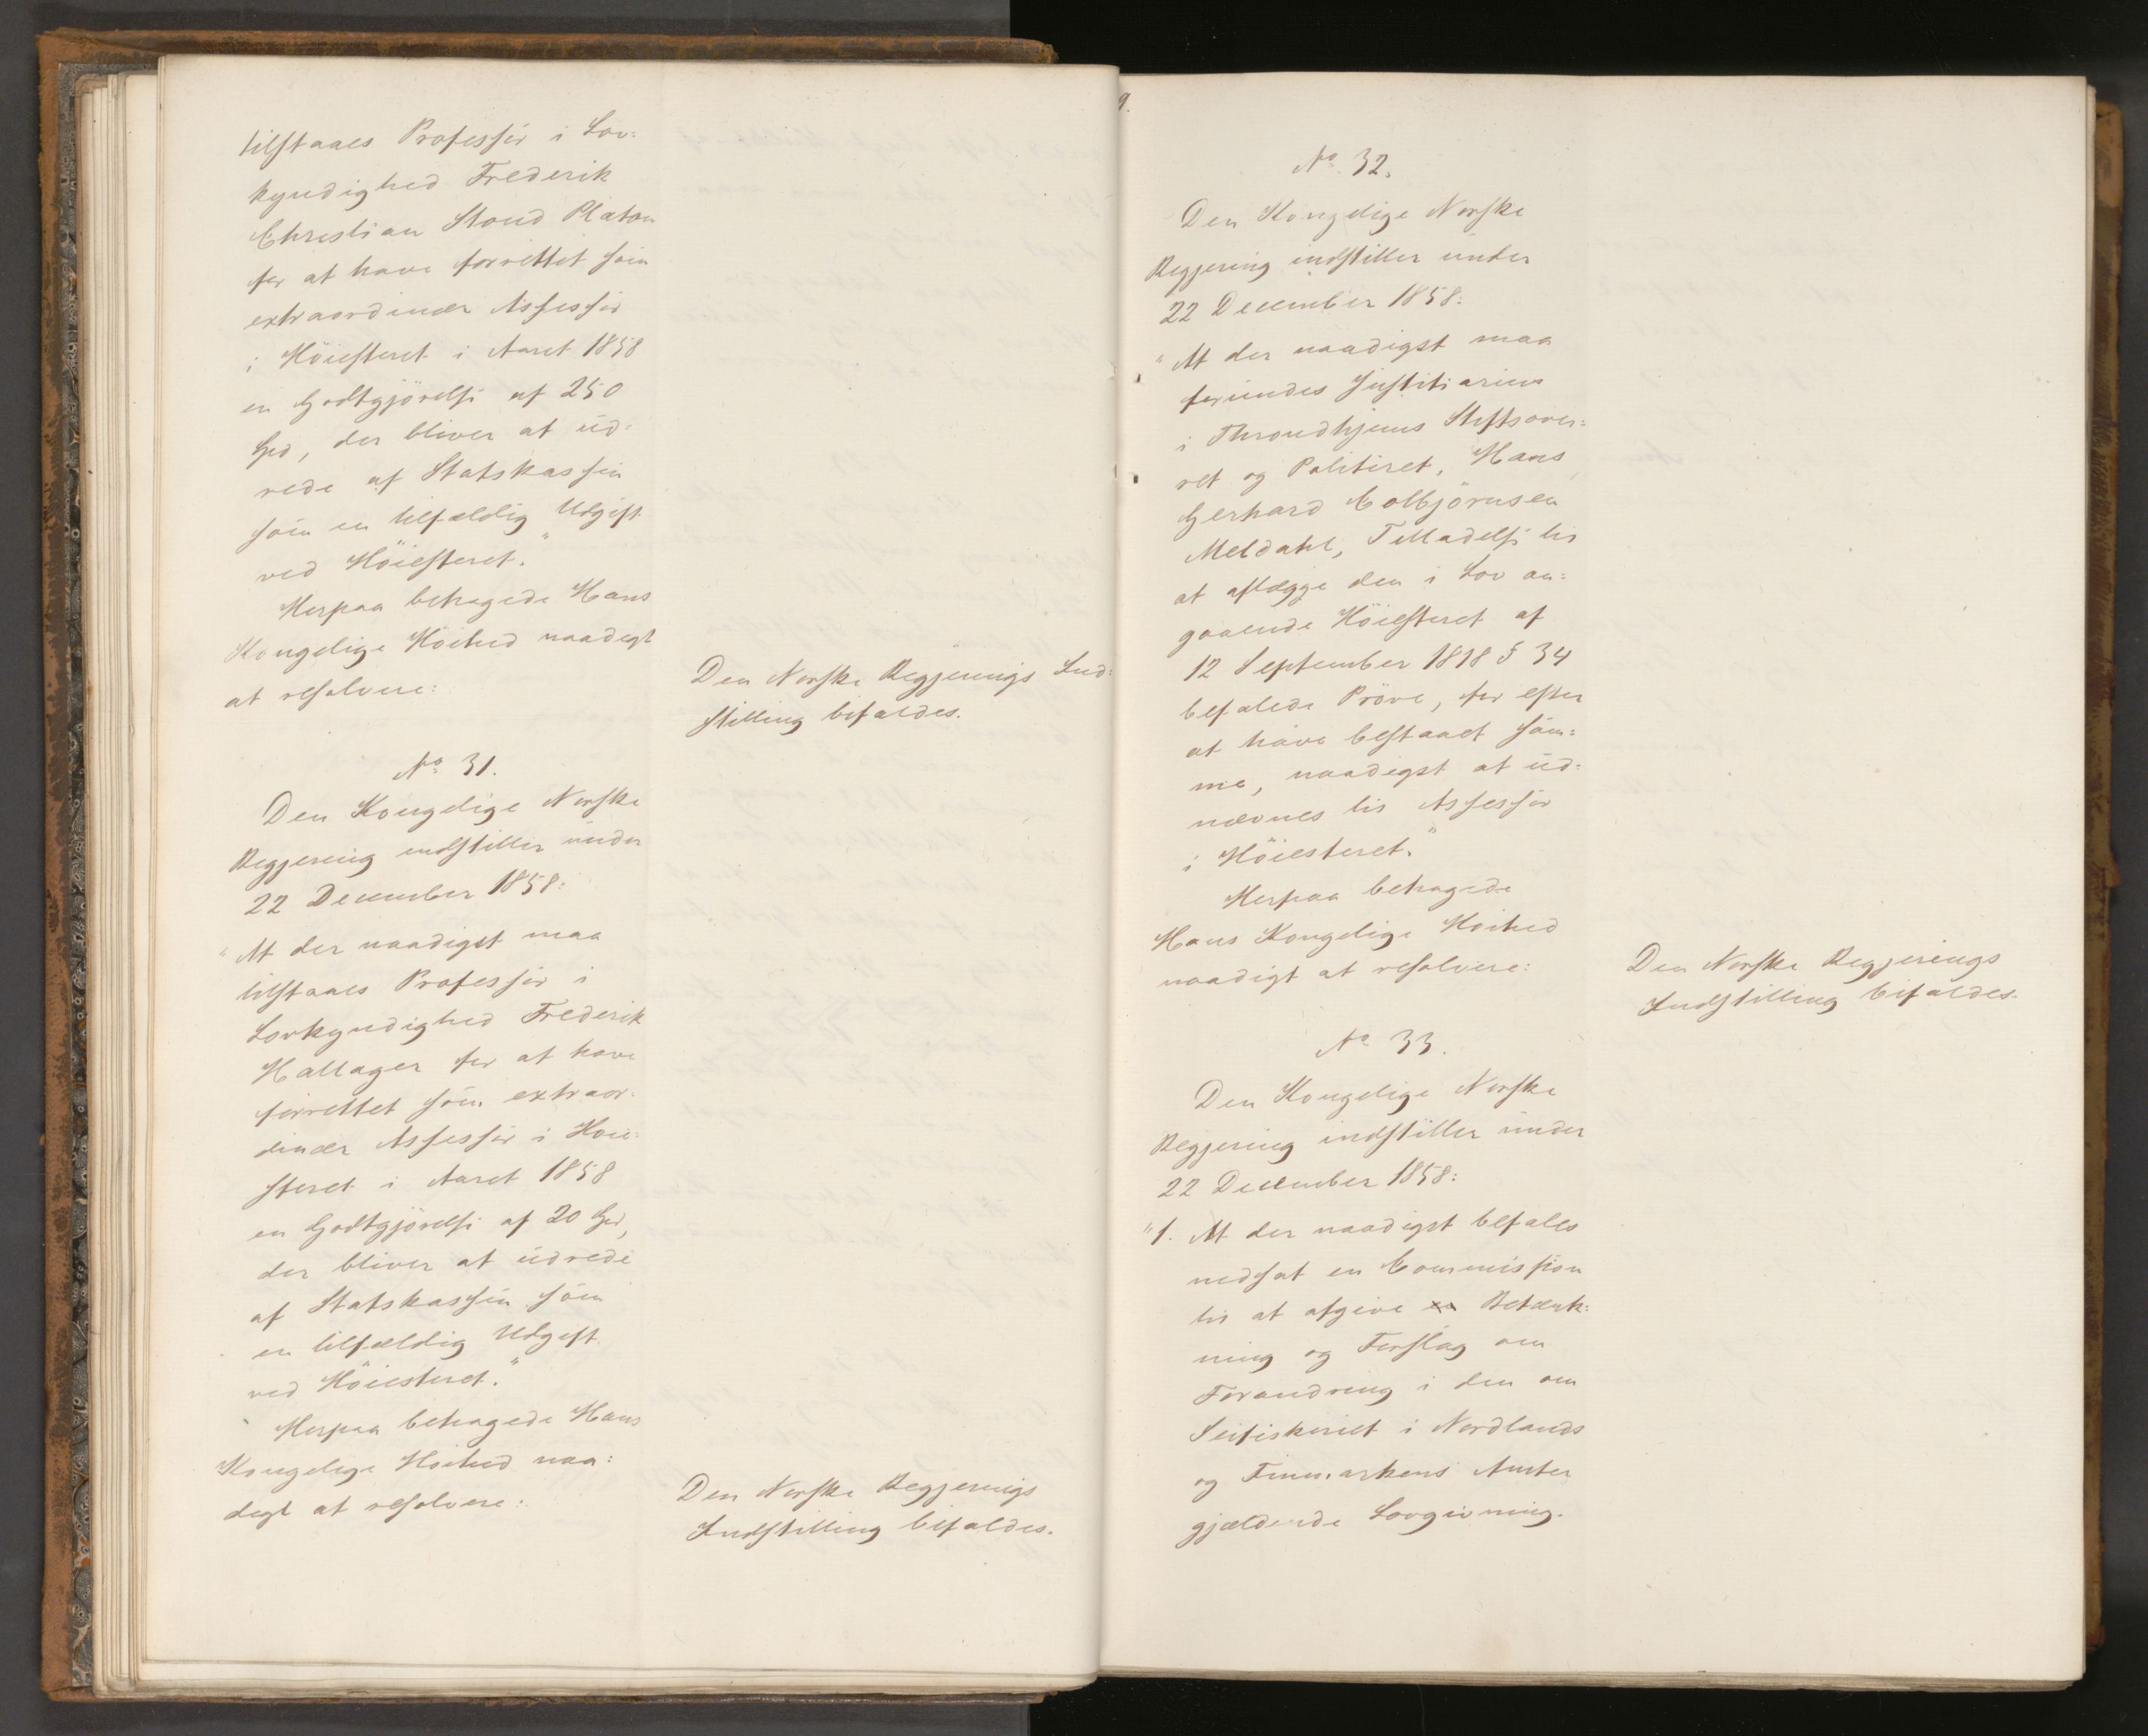 tilstaaes Professor i Lov-
kyndighed Frederik
Christian Stoud Platou
for at have forrettet som
extraordinær Assessor
i Höiesteret i Aaret 1858
en Godtgjörelse af 250
Spd, der bliver at ud-
rede af Statskassen
som en tilfældig Udgift
ved Höiesteret."
Herpaa behagede Hans
Kongelige Höihed naadigst
at resolvere:
Den Norske Regjerings Ind-
stilling bifaldes.
No 31.
Den Kongelige Norske
Regjering indstiller under
22 December 1858:
"At der naadigst maa
tilstaaes Professor i
Lovkyndighed Frederik
Hallager for at have
forrettet som extraor-
dinær Assessor i Höie-
steret i Aaret 1858
en Godtgjörelse af 20 Spd,
der bliver at udrede
af Statskassen som
en tilfældig Udgift
ved Höiesteret."
Herpaa behagede Hans
Kongelige Höihed naa-
digst at resolvere:
Den Norske Regjerings
Indstilling bifaldes.
9.
No 32.
Den Kongelige Norske
Regjering indstiller under
22 December 1858:
"At der naadigst maa
forundes Justitiarius
i Throndhjems Stiftsover-
ret og Politiret, Hans
Gerhard Colbjörnsen
Meldahl, Tilladelse til
at aflægge den i Lov an-
gaaende Höiesteret af
12 September 1818 § 34
befalede Pröve, for efter
at have bestaaet sam-
me, naadigst at ud-
nævnes til Assessor
i Höiesteret."
Herpaa behagede
Hans Kongelige Höihed
naadigt at resolvere:
Den Norske Regjerings
Indstilling bifaldes.
No 33.
Den Kongelige Norske
Regjering indstiller under
22 December 1858:
"1. At der naadigst befales
nedsat en Commission
til at afgive Betænk-
ning og Forslag om
Forandring i den om
Seifiskeriet i Nordlands
og Finmarkens Amter
gjældende Lovgivning.